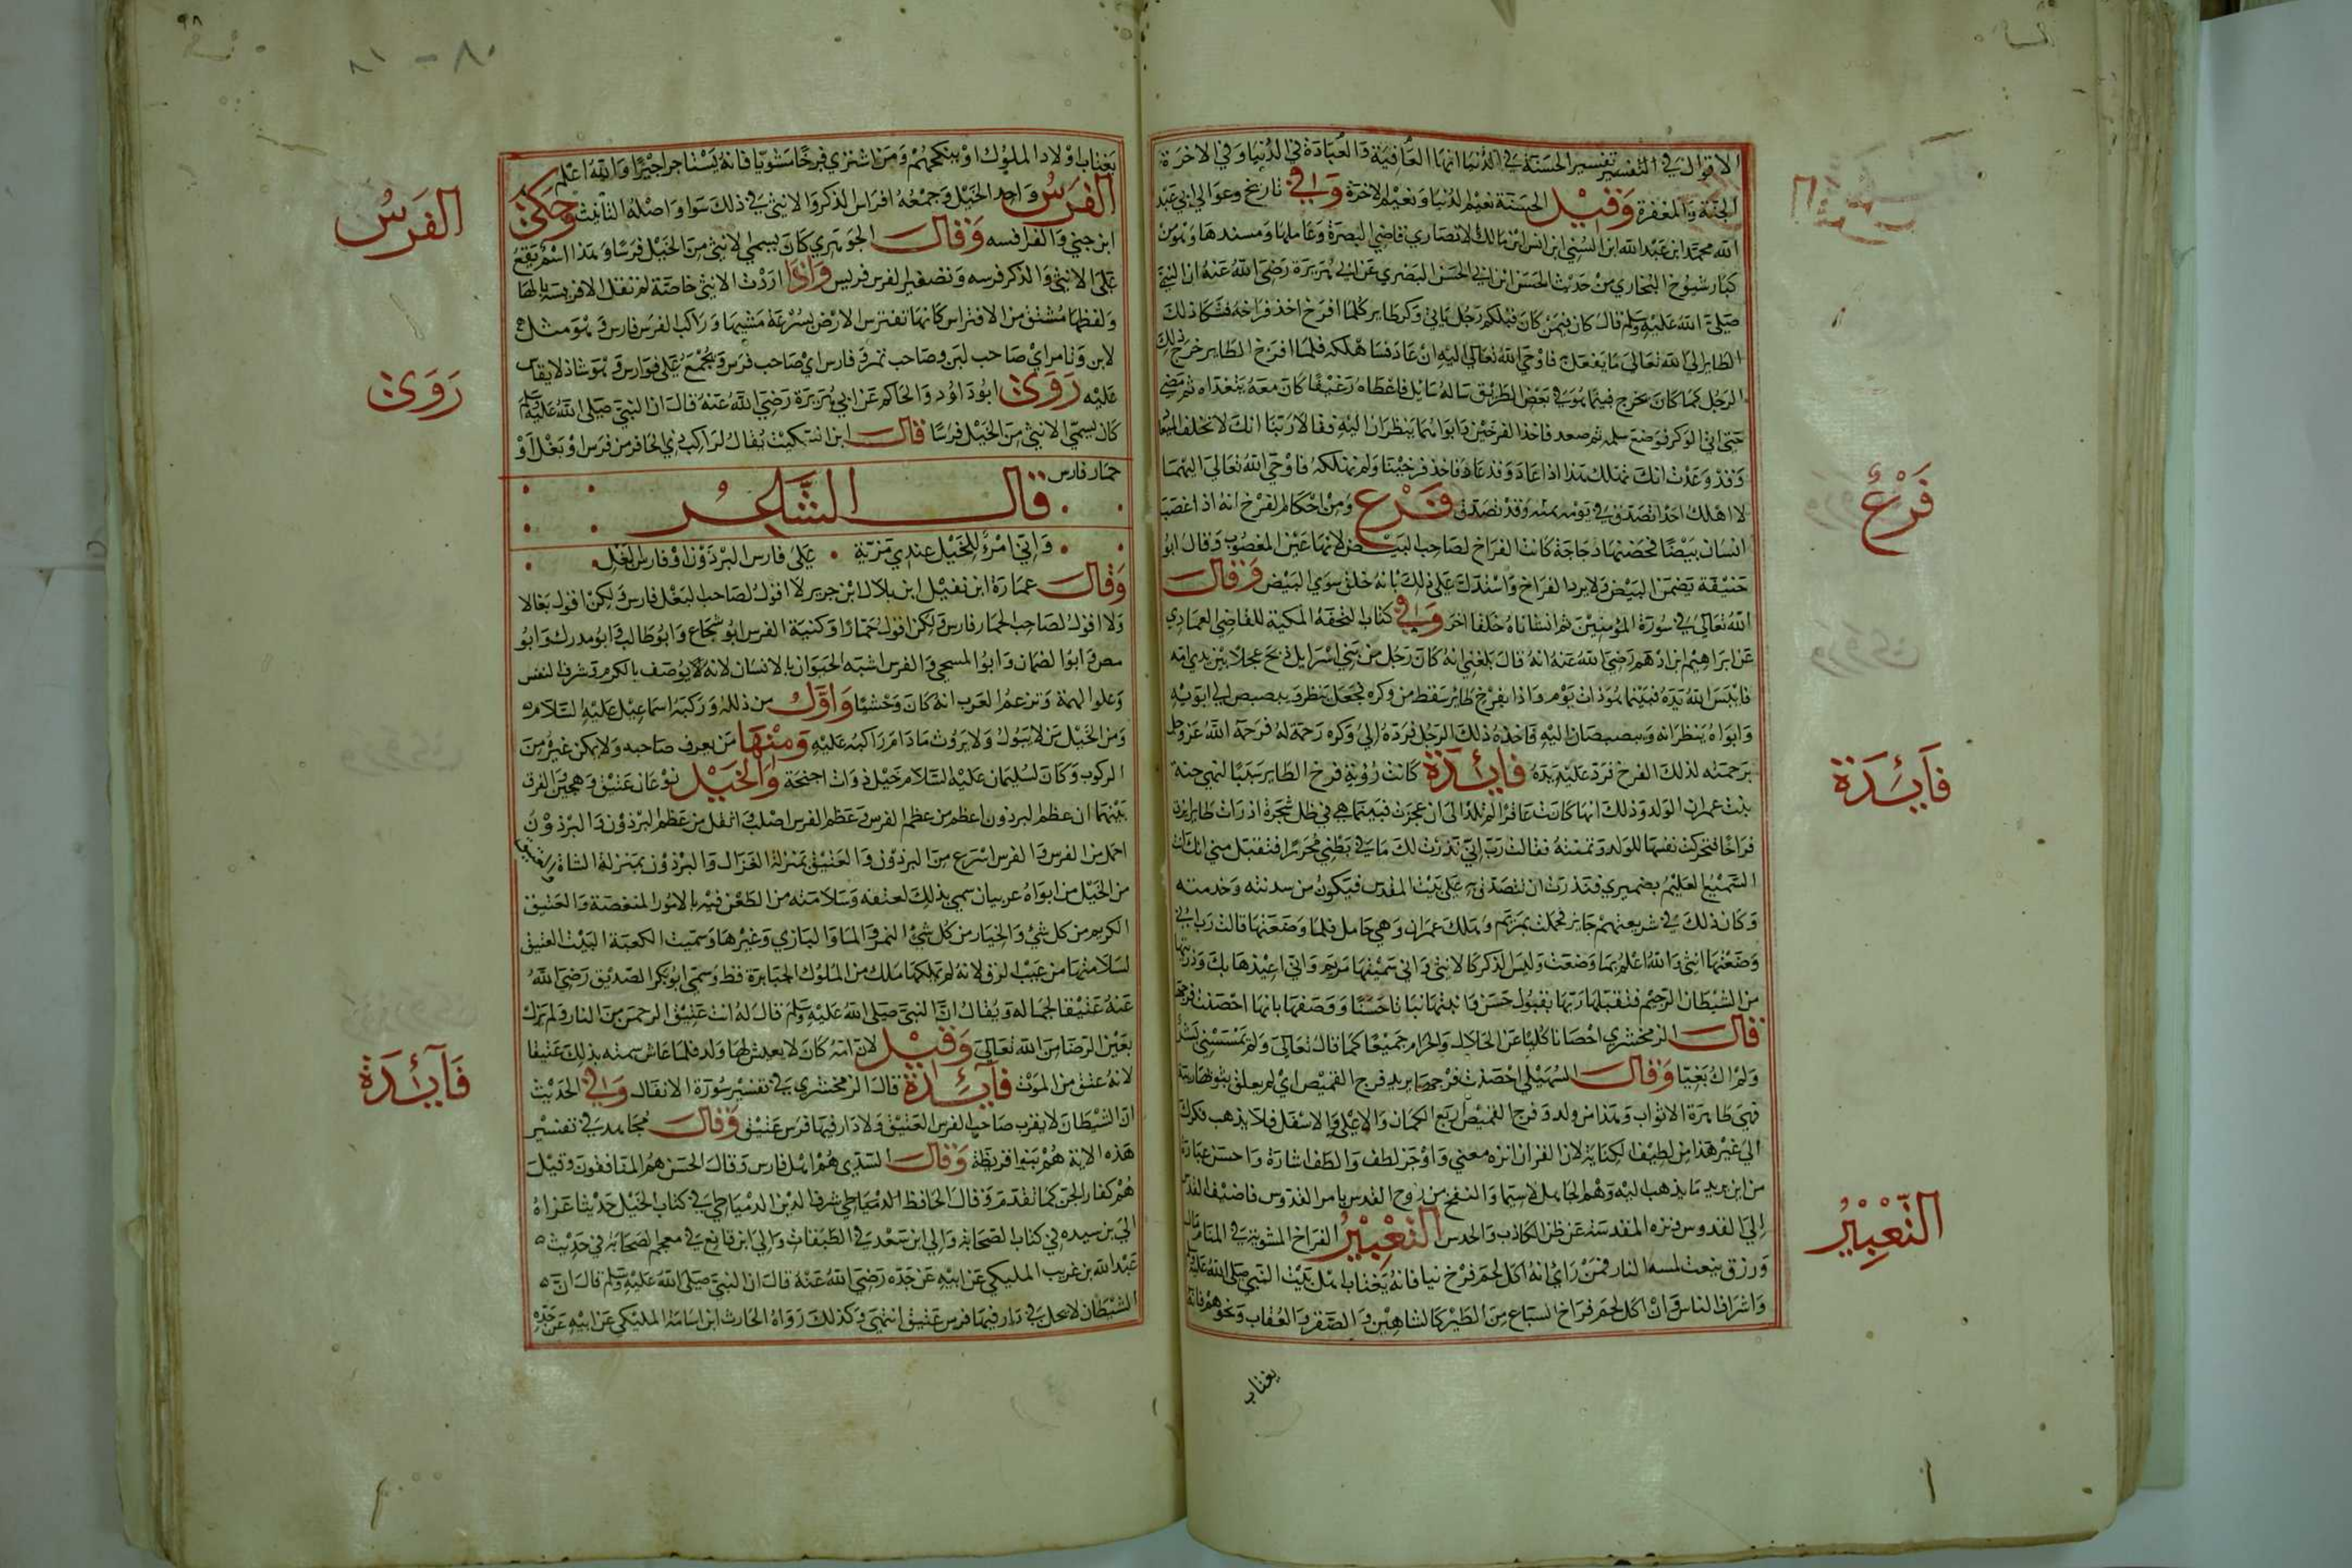 الاقوال في التفسير تفسير الحسنة في الدنيا انها العافية والعبادة في الدنيا وفي الاخرة
الجنة والمغفرة وقيل الحسنة نعيم الدنيا ونعيم الاخرة وفي تاريخ وعوالي ابي عبد
الله محمد ابن عبد الله ابن السني ابن انس ابن مالك الانصاري قاضي البصرة وعاملها ومسندها وهو من
كبار شيوخ البخاري من حديث الحسن ابن ابي الحسن البصري عن ابي هريرة رضي الله عنه ان النبي
صلى الله عليه وسلم قال كان فيمن كان قبلكم رجل ياتي وكر طاير كلما افرخ اخذ فراخه فشكا ذلك
الطاير الى الله تعالى ما يفعل فاوحى الله تعالى اليه ان عاد فساهلكه فلما افرخ الطاير خرج ذلك
الرجل كما كان يخرج فبينما هو في بعض الطريق ساله سايل فاعطاه رغيفا كان معه يتغداه ثم مضى
حتى اتى الوكر فوضع سلمه ثم صعد فاخذ الفرخين وابواهما ينظران اليه فقالا ربنا انك لا تخلف الميعاد
وقد وعدت انك تهلك هذا اذا عاد وقد عاد فاخذ فرخينا ولم تهلكه فاوحى الله تعالى اليهما
لا اهلك احدا تصدق في يومه وقد تصدق فرع ومن احكام الفرخ انه اذا غصب
انسان بيضا فحضنها دجاجة كانت الفراخ لصاحب البيض لانها عين المغصوب وقال ابو
حنيفة يضمن البيض ولا يرد الفراخ واستدل على ذلك بانه خلق سوى البيض وقال
الله تعالى في سورة المؤمنين ثم انشاناه خلقا اخر وفي كتاب التحفة المكية للقاضي العمادي
عن ابراهيم ابن ادهم رضي الله عنه انه قال بلغني انه كان رجل من بني اسرايل ذبح عجلا بين يدي امه
فايبس الله يده فبينما هو ذات يوم واذا بفرخ طاير سقط من وكره فجعل ينظر ويبصبص الى ابويه
وابواه ينظرانه ويبصبصان اليه فاخذه ذلك الرجل فرده الى وكره رحمة له فرحمه الله عز وجل
برحمته لذلك الفرخ فرد عليه يده فائدة كانت رؤية فرخ الطاير سببا لتمني حنة
بنت عمران الولد وذلك انها كانت عاقرا لم تلد الى ان عجزت فبينما هي في ظل شجرة اذ رات طاير يزق
فراخا فتحركت نفسها للولد وتمنته فقالت رب اني نذرت لك ما في بطني محررا فتقبل مني انك انت
السميع العليم فنذرت ان تتصدق به على بيت المقدس فيكون من سدنته وخدمته
وكان ذلك في شريعتهم جايز فحملت بمريم وهلك عمران وهي حامل فلما وضعتها قالت رب اني
وضعتها انثى والله اعلم بما وضعت وليس الذكر كالانثى واني سميتها مريم واني اعيذها بك وذريتها
من الشيطان الرجيم فتقبلها ربها بقبول حسن وانبتها نباتا حسنا ووصفها بانها احصنت فرجها
قال الزمخشري احصانا كليا عن الحلال والحرام جميعا كما قال تعالى ولم يمسسني بشر
ولم اك بغيا وقال السهيلي احصنت فرجها يريد فرج القميص اي لم يعلق بثوبها ريبة
فهي طاهرة الاثواب وفرج القميص اربع الكمان والاعلى والاسفل فلا يذهب فكرك
الى غير هذا من لطيف الكناية لان القران انزه معنى واوجز لفظ والطف اشارة واحسن عبارة
من ان يريد ما يذهب اليه وهم الجاهل لاسيما والنفخ من روح القدس بامر القدوس فاضيف القدس
الى القدوس ونزه المقدسة عن ظن الكاذب والحدس التعبير الفراخ المشوية في المنام مال
ورزق بتعب لمسه النار فمن راى انه اكل لحم فرخ نيا فانه يغتاب اهل بيت النبي صلى الله عليه
واشراف الناس وان اكل لحم فراخ السباع من الطير كالشاهين والصقر والعقاب ونحوهم فانه
يغتاب
فرع
فائدة
التعبير
٩٨
٨٠ - ٨١
يغتاب اولاد الملوك او ينكحهم ومن اشترى فرخا مشويا فانه يستاجر اجيرا والله اعلم
الفرس واحد الخيل وجمعه افراس الذكر والانثى في ذلك سوا واصله التانيث وحكى
ابن جني والفرا فرسه وقال الجوهري كان يسمى الانثى من الخيل فرسا وهذا اسم يقع
على الانثى والذكر فرسه وتصغير الفرس فريس واذا اردت الانثى خاصة لم تقل الا فريسة بالها
ولفظها مشتق من الافتراس كانها تفترس الارض بسرعة مشيها وراكب الفرس فارس وهو مثل
لابن وتامر اي صاحب لبن وصاحب تمر وفارس اي صاحب فرس ويجمع على فوارس وهو شاذ لا يقاس
عليه روى ابو داود والحاكم عن ابي هريرة رضي الله عنه قال ان النبي صلى الله عليه وسلم
كان يسمي الانثى من الخيل فرسا قال ابن السكيت يقال لراكب ذي الحافر من فرس او بغل او
حمار فارس
قال الشاعر
واني امرؤ للخيل عندي مزية على فارس البرذون او فارس البغل
وقال عمارة ابن نفيل ابن بلال ابن جرير لا اقول لصاحب البغل فارس ولكن اقول بغالا
ولا اقول لصاحب الحمار فارس ولكن اقول حمارا وكنية الفرس ابو شجاع وابو طالب وابو مدرك وابو
مضى وابو الضمان وابو المسيحي والفرس اشبه الحيوان بالانسان لانه يوصف بالكرم وشرف النفس
وعلو الهمة وتزعم العرب انه كان وحشيا واول من ذلله وركبه اسماعيل عليه السلام
ومن الخيل من لا يبول ولا يروث ما دام راكبه عليه ومنها من يعرف صاحبه ولا يمكن غيره من
الركوب وكان لسليمان عليه السلام خيل ذوات اجنحة والخيل نوعان عتيق وهجين الفرق
بينهما ان عظم البرذون اعظم من عظم الفرس وعظم الفرس اصلب واثقل من عظم البرذون والبرذون
احمل من الفرس والفرس اسرع من البرذون والعتيق بمنزلة الغزال والبرذون بمنزلة الشاة والعتيق
من الخيل من ابواه عربيان سمي بذلك لعتقه وسلامته من الطعن فيه بالامور المنغصة والعتيق
الكريم من كل شي والخيار من كل شي التمر والما والبازي وغيرها وسميت الكعبة البيت العتيق
لسلامتها من عيب الرق لانه لم يملكها ملك من الملوك الجبابرة قط وسمي ابو بكر الصديق رضي الله
عنه عتيقا لجماله ويقال ان النبي صلى الله عليه وسلم قال له انت عتيق الرحمن من النار ولم يزل
بعين الرضا من الله تعالى وقيل لان امه كان لا يعيش لها ولد فلما عاش سمته بذلك عتيقا
لانه عتق من الموت فائدة قال الزمخشري في تفسير سورة الانفال وفي الحديث
ان الشيطان لا يقرب صاحب الفرس العتيق ولا دار فيها فرس عتيق وقال مجاهد في تفسير
هذه الاية هم بنوا قريظة وقال السدي هم اهل فارس وقال الحسن هم المنافقون وقيل
هم كفار الجن كما تقدم وقال الحافظ الدمياطي شرف الدين الدمياطي في كتاب الخيل حديثا عزاه
الى بن سيده في كتاب الصحابة والى ابن سعد في الطبقات والى ابن قانع في معجم الصحابة في حديث
عبد الله بن غريب المليكي عن ابيه عن جده رضي الله عنه قال ان النبي صلى الله عليه وسلم قال ان
الشيطان لا يحل في دار فيها فرس عتيق انتهى وكذلك رواه الحارث ابن اسامة المليكي عن ابيه عن جده
الفرس
روى
فائدة